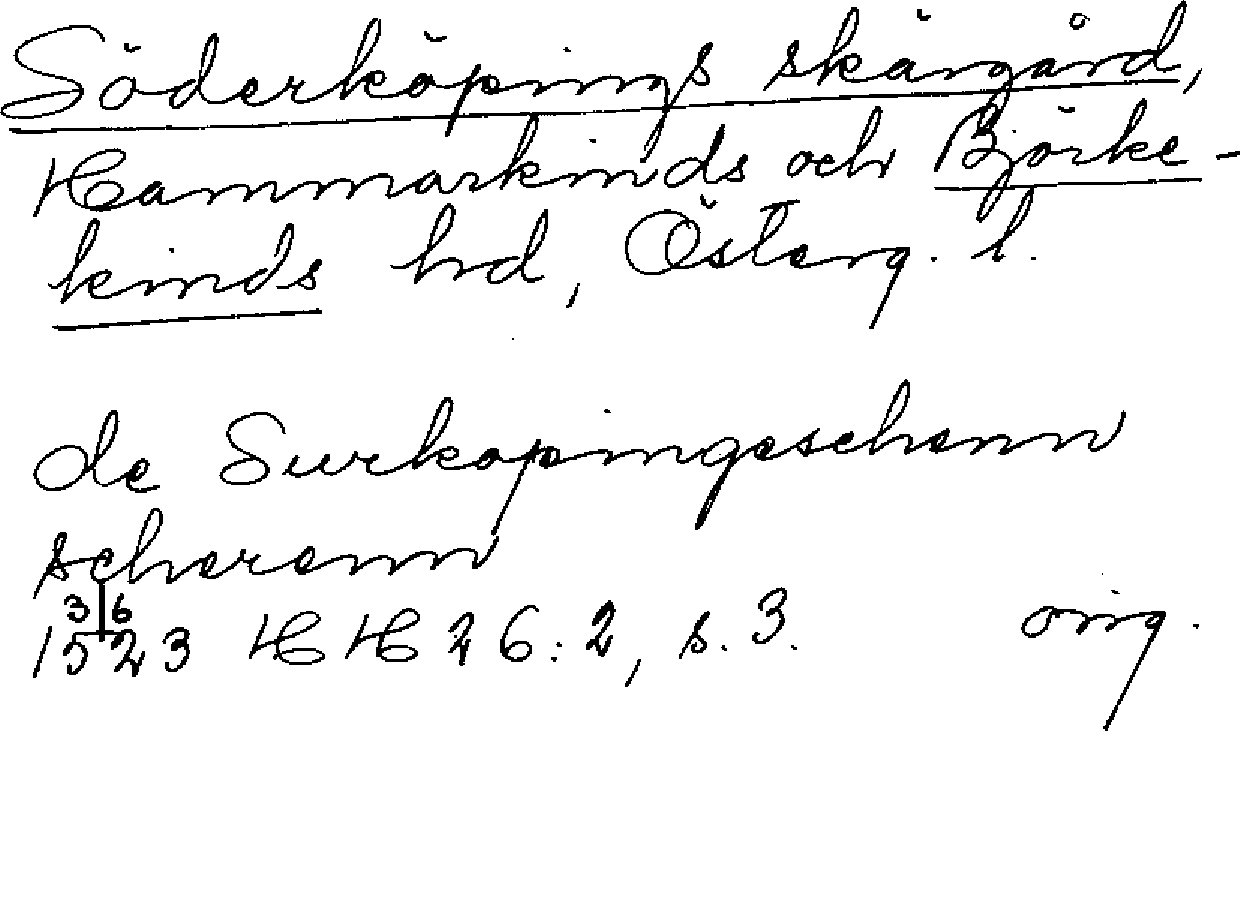 Söderköpings skärgård,
Hammarkinds och Björke-
kinds hd, Österg. l.
de Surkopingeschenn
scherenn
3/6
1523 HH 26:2, s. 3. orig.